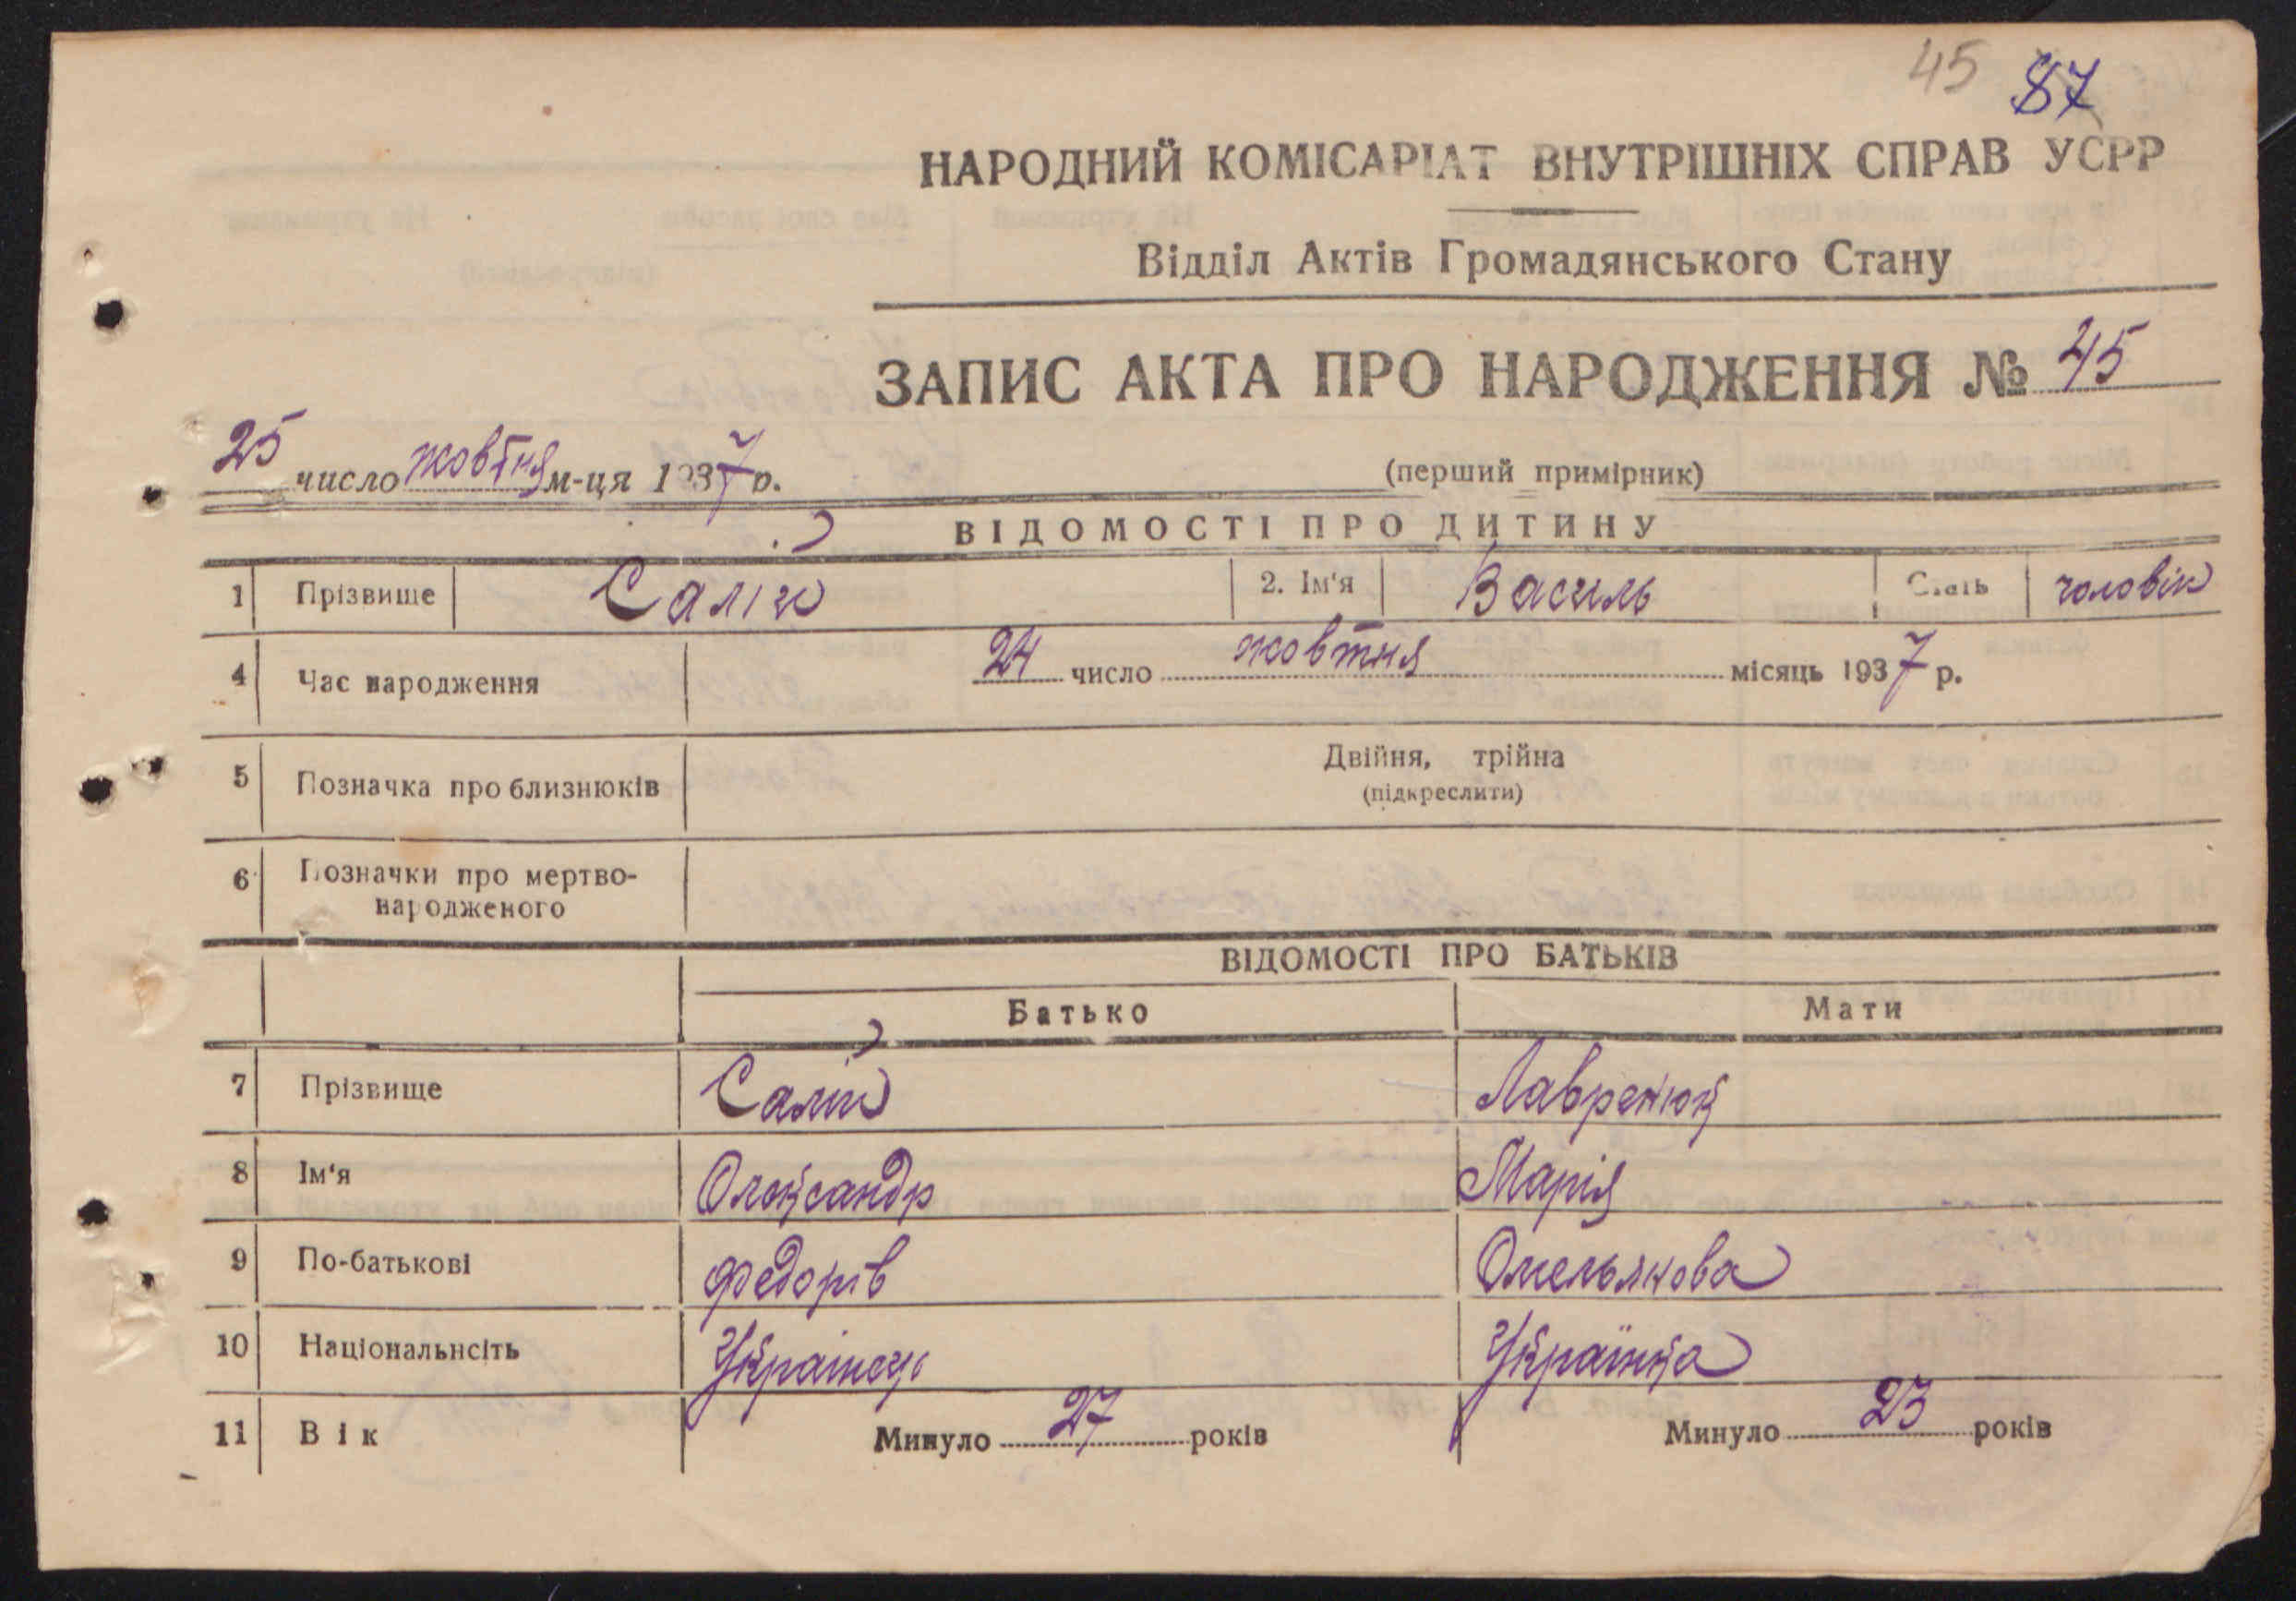 45 87
НАРОДНИЙ КОМІСАРІАТ ВНУТРІШНІХ СПРАВ УСРР
Відділ Актів Громадянського Стану
ЗАПИС АКТА ПРО НАРОДЖЕННЯ № 45
25 число жовтня м-ця 1937 р.
(перший примірник)
ВІДОМОСТІ ПРО ДИТИНУ
1 Прізвище Салій 2. Ім'я Василь Стать чоловік
4 Час народження 24 число жовтня місяць 1937 р.
5 Позначка про близнюків Двійня, трійна
(підкреслити)
6 Позначки про мертво-
народженого
ВІДОМОСТІ ПРО БАТЬКІВ
Батько Мати
7 Прізвище Салій Лавренюк
8 Ім'я Олександр Марія
9 По-батькові Федорів Омельянова
10 Національнсіть Українець Українка
11 Вік Минуло 27 років Минуло 23 років